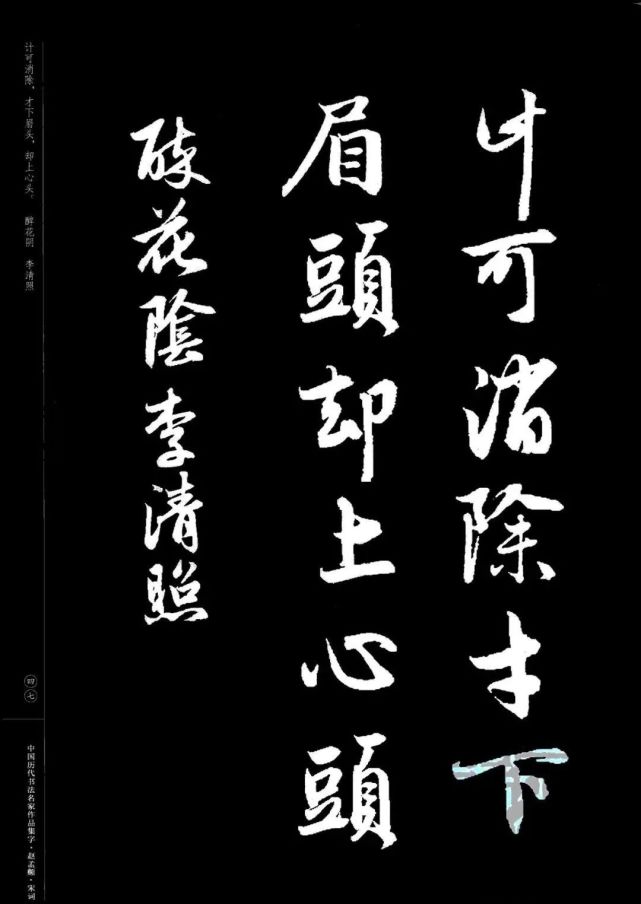 计可消除才下
眉頭却上心頭
醉花陰李清照
计可消除，才下眉头，却上心头。 醉花阴 李清照
四七
中国历代书法名家作品集字·赵孟頫·宋词